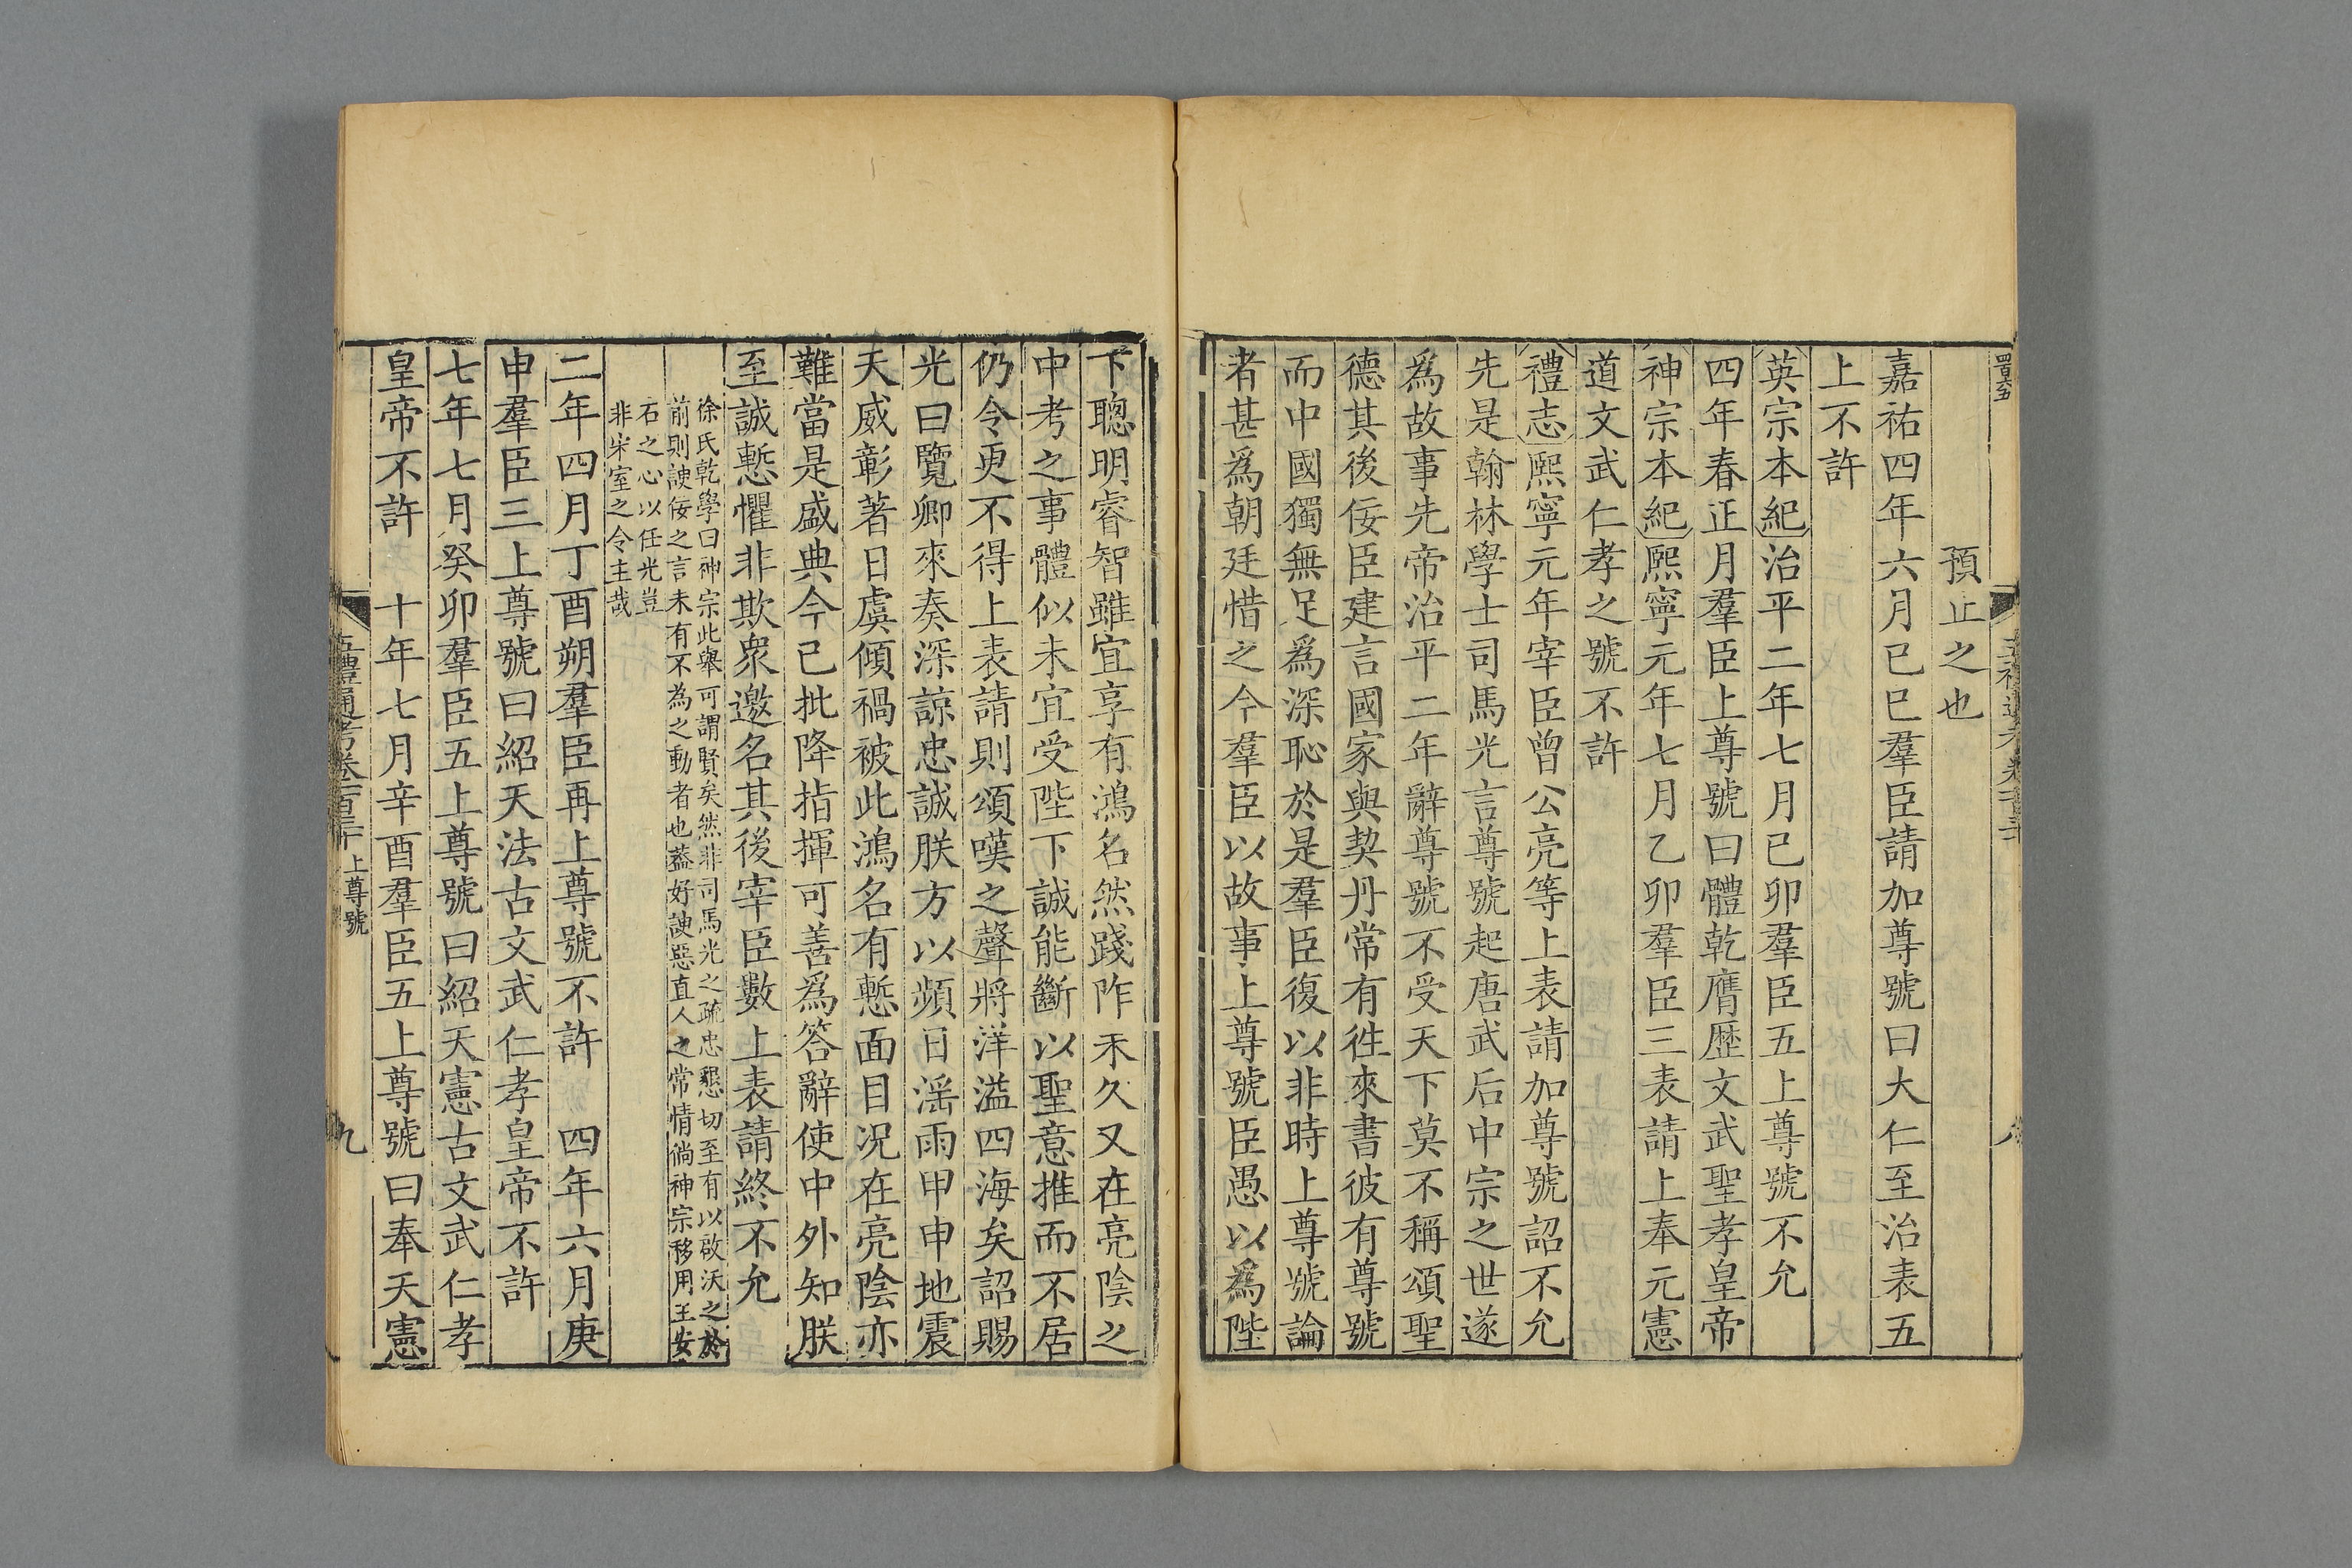 預止之也
嘉祐四年六月已巳羣臣請加尊號曰大仁至治表五
上不許
英宗本紀治平二年七月已卯羣臣五上尊號不允
四年春正月羣臣上尊號曰體乾膺歴文武聖孝皇帝
神宗本紀熙寧元年七月乙卯羣臣三表請上奉元憲
道文武仁孝之號不許
禮志熙寧元年宰臣曾公亮等上表請加尊號詔不允
先是翰林學士司馬光言尊號起唐武后中宗之世遂
爲故事先帝治平二年辭尊號不受天下莫不稱頌聖
德其後佞臣建言國家與契丹常有徃來書彼有尊號
而中國獨無足爲深恥於是羣臣復以非時上尊號論
者甚爲朝廷惜之今羣臣以故事上尊號臣愚以爲陛
下聰明睿智雖宜享有鴻名然踐阼未久又在亮陰之
中考之事體似未宜受陛下誠能斷以聖意推而不居
仍令更不得上表請則頌嘆之聲將洋溢四海矣詔賜
光曰覽卿來奏深諒忠誠朕方以頻日淫雨甲申地震
天威彰著日虞傾禍被此鴻名有慙面目况在亮陰亦
難當是盛典今已批降指揮可善爲答辭使中外知朕
至誠慙懼非欺衆邀名其後宰臣數上表請終不允
徐氏乾學曰神宗此舉可謂賢矣然非司馬光之疏忠懇切至有以啟沃之於
前則諛佞之言未有不為之動者也葢好諛惡直人之常情倘神宗移用王安
石之心以任光豈
非宋室之令主哉
二年四月丁酉朔羣臣再上尊號不許　四年六月庚
申羣臣三上尊號曰紹天法古文武仁孝皇帝不許
七年七月癸卯羣臣五上尊號曰紹天憲古文武仁孝
皇帝不許　十年七月辛酉羣臣五上尊號曰奉天憲
五禮通考卷一百三十　上尊號　九